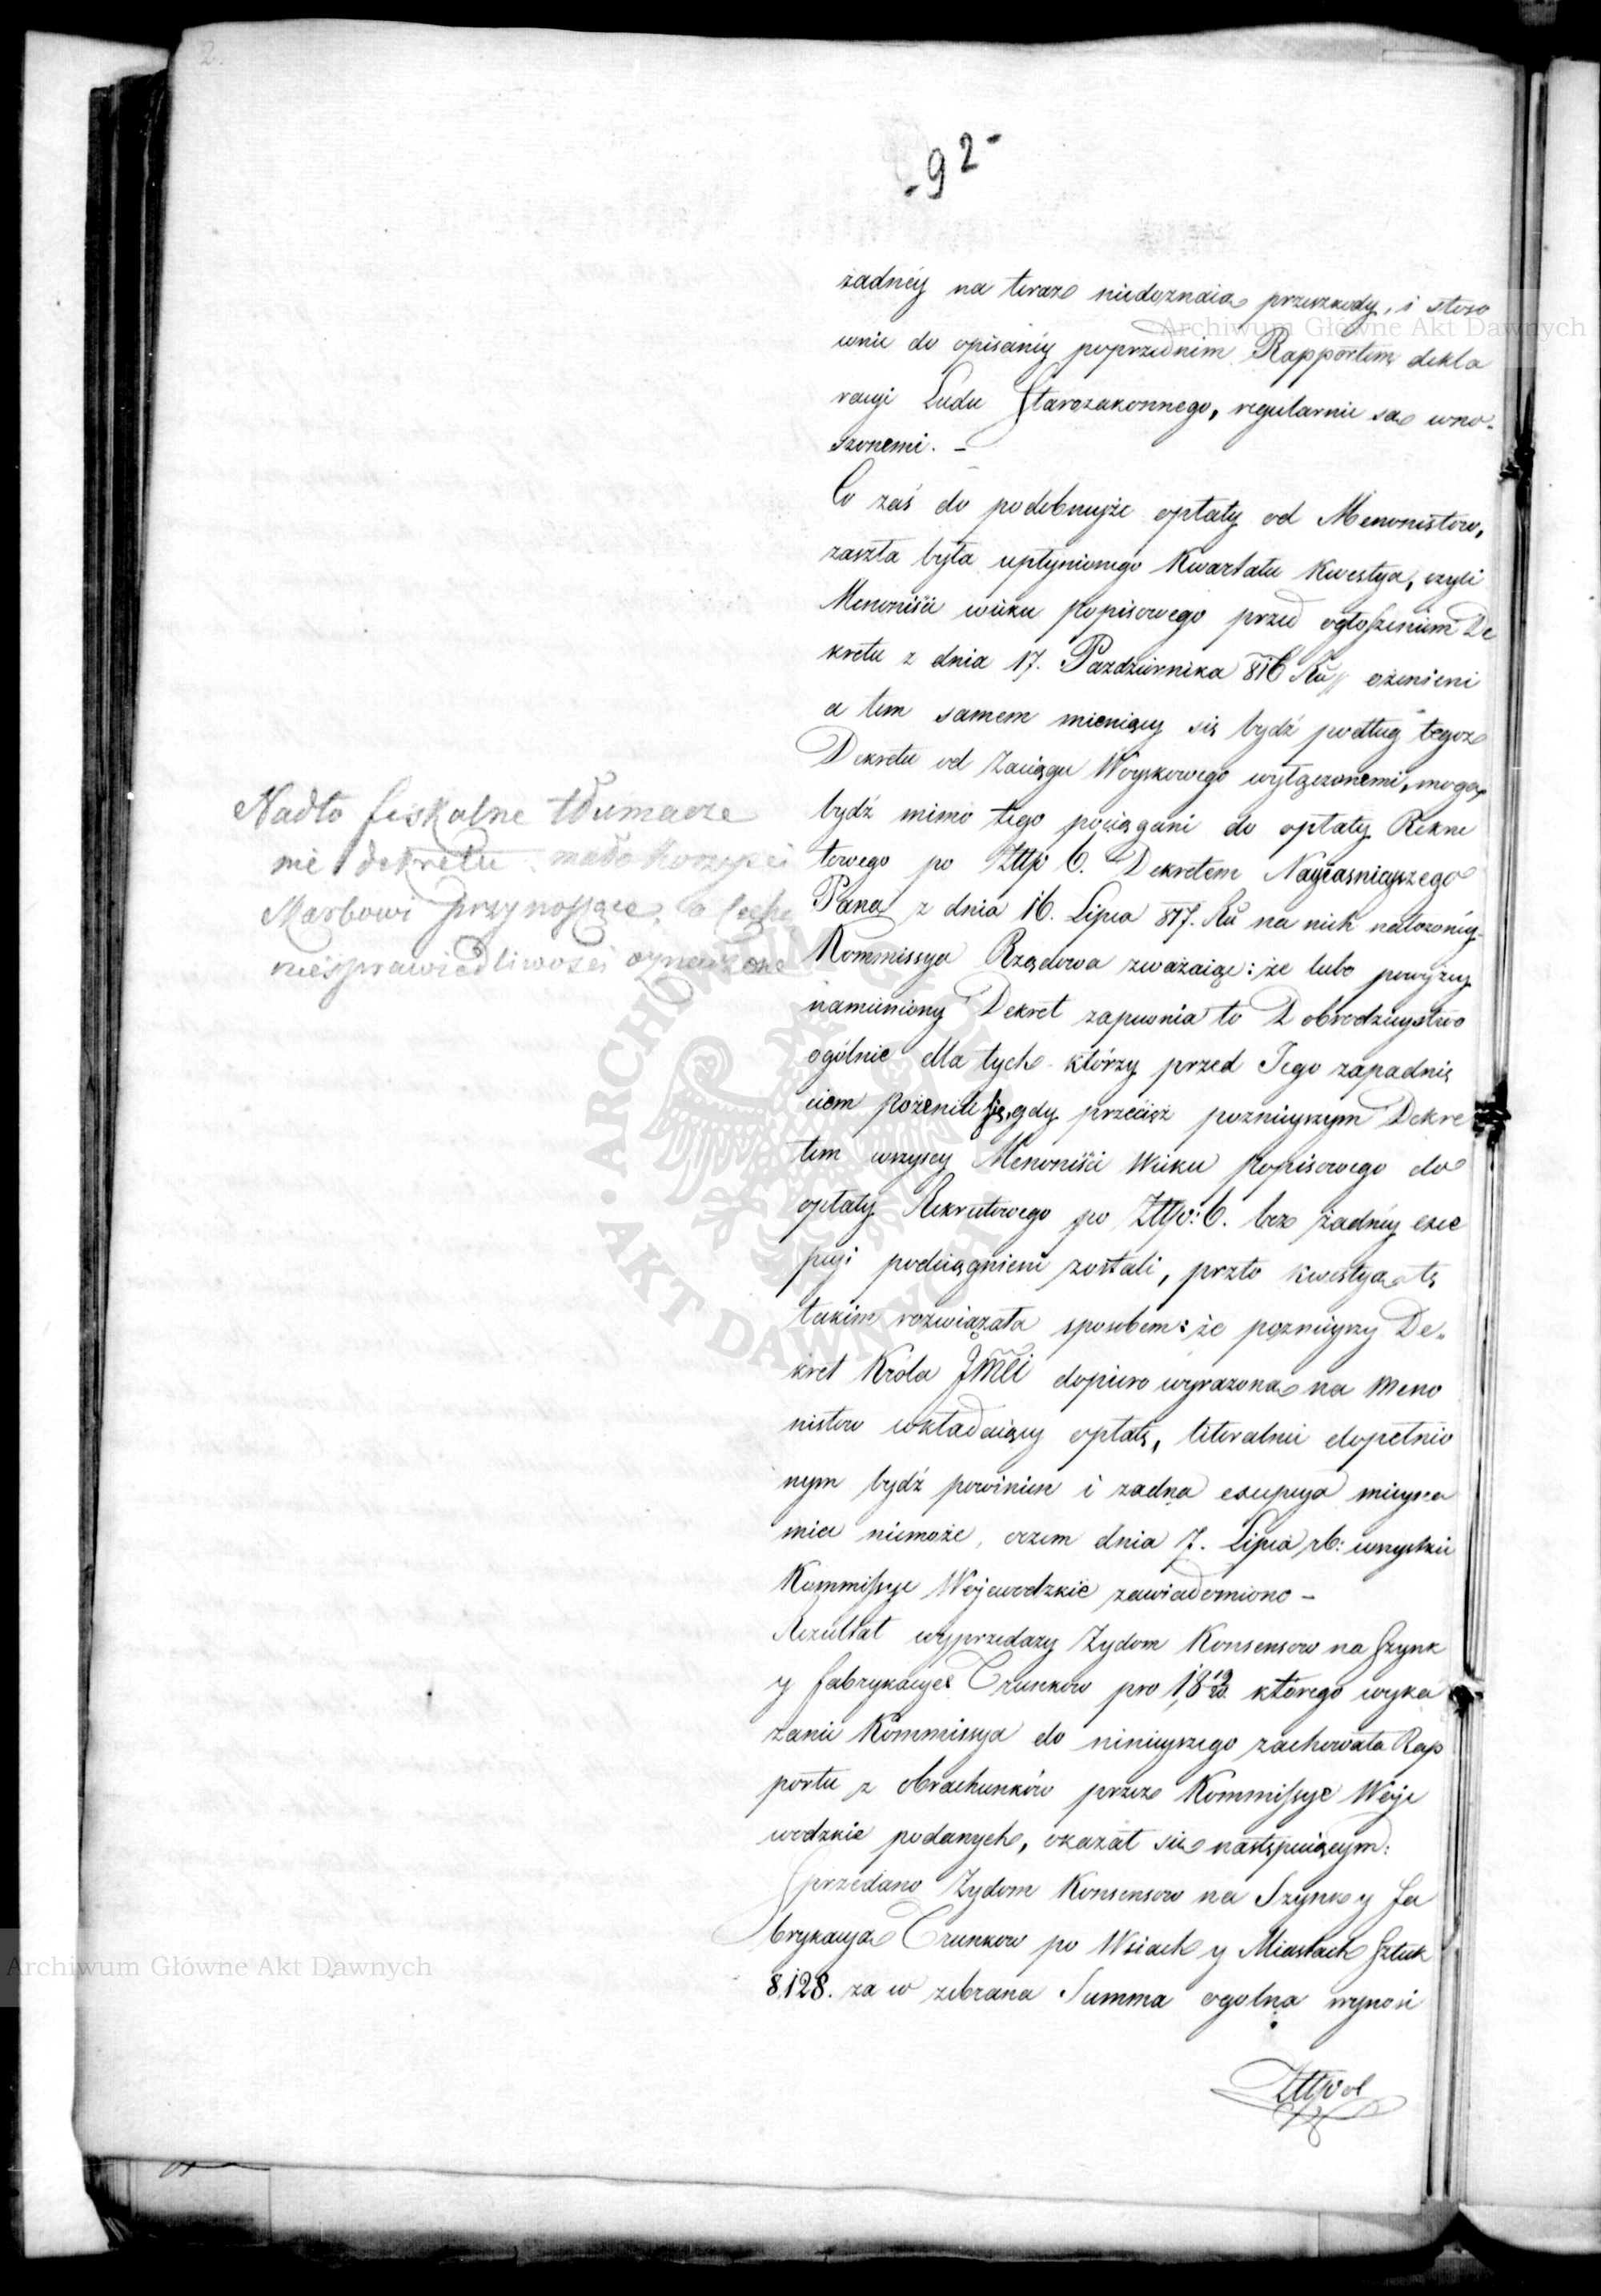 2.
- 92 -
żadnéy na teraz niedoznaią przeszkody, i stoso
wnie do opisanéy poprzednim Rapportem dekla
racyi Ludu Starozakonnego, regularnie są wno-
szonemi. -
Co zaś do podobneyże opłaty od Menonistow,
zaszła była upłynionego Kwartału Kwestya, czyli
Menoniści wieku popisowego przed ogłoszeniem De
kretu z dnia 17. Pazdziernika 816 Ru ożenieni
a tem samem mieniący się bydź podług tegoż
Dekretu od Zaciągu Woyskowego wyłączonemi, mogą
bydź mimo tego pociągani do opłaty Rekru
towego po Złłp 6. Dekretem Nayiasnieyszego
Pana z dnia 16. Lipca 817. Ru na nich nałozonéy
Kommissya Rządowa zważaiąc: że lubo powyżey
namieniony Dekret zapewnia to Dobrodzieystwo
ogólnie dla tych którzy przed Jego zapadnię
ciem pożenili się, gdy przecież poznieyszym Dekre
tem wszyscy Menoniści Wieku popisowego do
opłaty Rekrutowego po Złłp: 6. bez żadnéy exce
pcyi podciągnieni zostali, przto kwestyą tę
takim rozwiązała sposobem: że poznieyszy De-
kret Króla JMCi dopiero wyrazoną na Meno
nistow wkładaiący opłatę, literalnie dopełnio
nym bydź powinien i zadna excepcya mieysca
miec niemoże, oczem dnia 7. Lipca rb: wszystkie
Kommissye Wojewodzkie zawiadomiono -
Rezultat wyprzedazy Zydom Konsensow na Szynk
y fabrykacye Trunkow pro 18 19/20. ktorego wyka
zanie Kommissya do ninieyszego zachowała Rap
portu z obrachunków przez Kommissye Woje
wodzkie podanych, okazał się następuiącym:
Sprzedano Zydom Konsensow na Szynk y Fa
brykacyą Trunkow po Wsiach y Miastach Sztuk
8,128. za w zebrana Summa ogolna wynosi
Złłpol
Nadto fiskalne tłumacze
nie dekretu mało korzyści
Skarbowi przynoszące, a cechę
niesprawiedliwości
Archiwum Główne Akt Dawnych
Archiwum Główne Akt Dawnych
ARCHIWUM GŁÓWNE AKT DAWNYCH